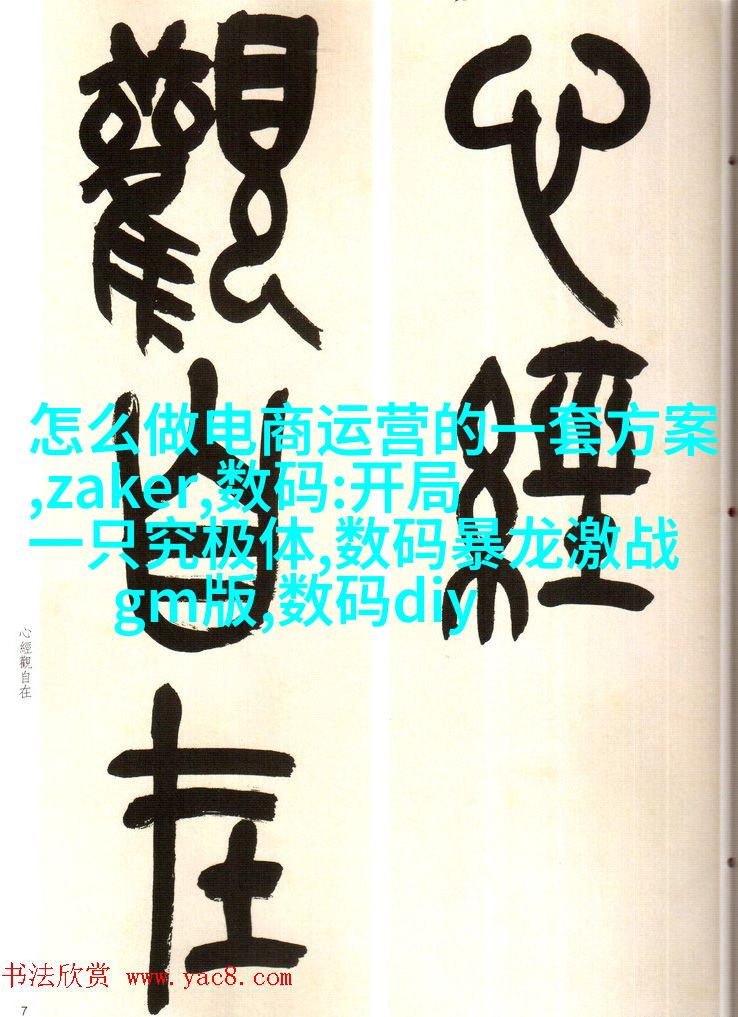 心經
觀自在
怎么做电商运营的一套方案
,zaker,数码:开局
一只究极体,数码暴龙激战
gm版,数码diy
心經觀自在
书法欣赏 www.yac8.com
7